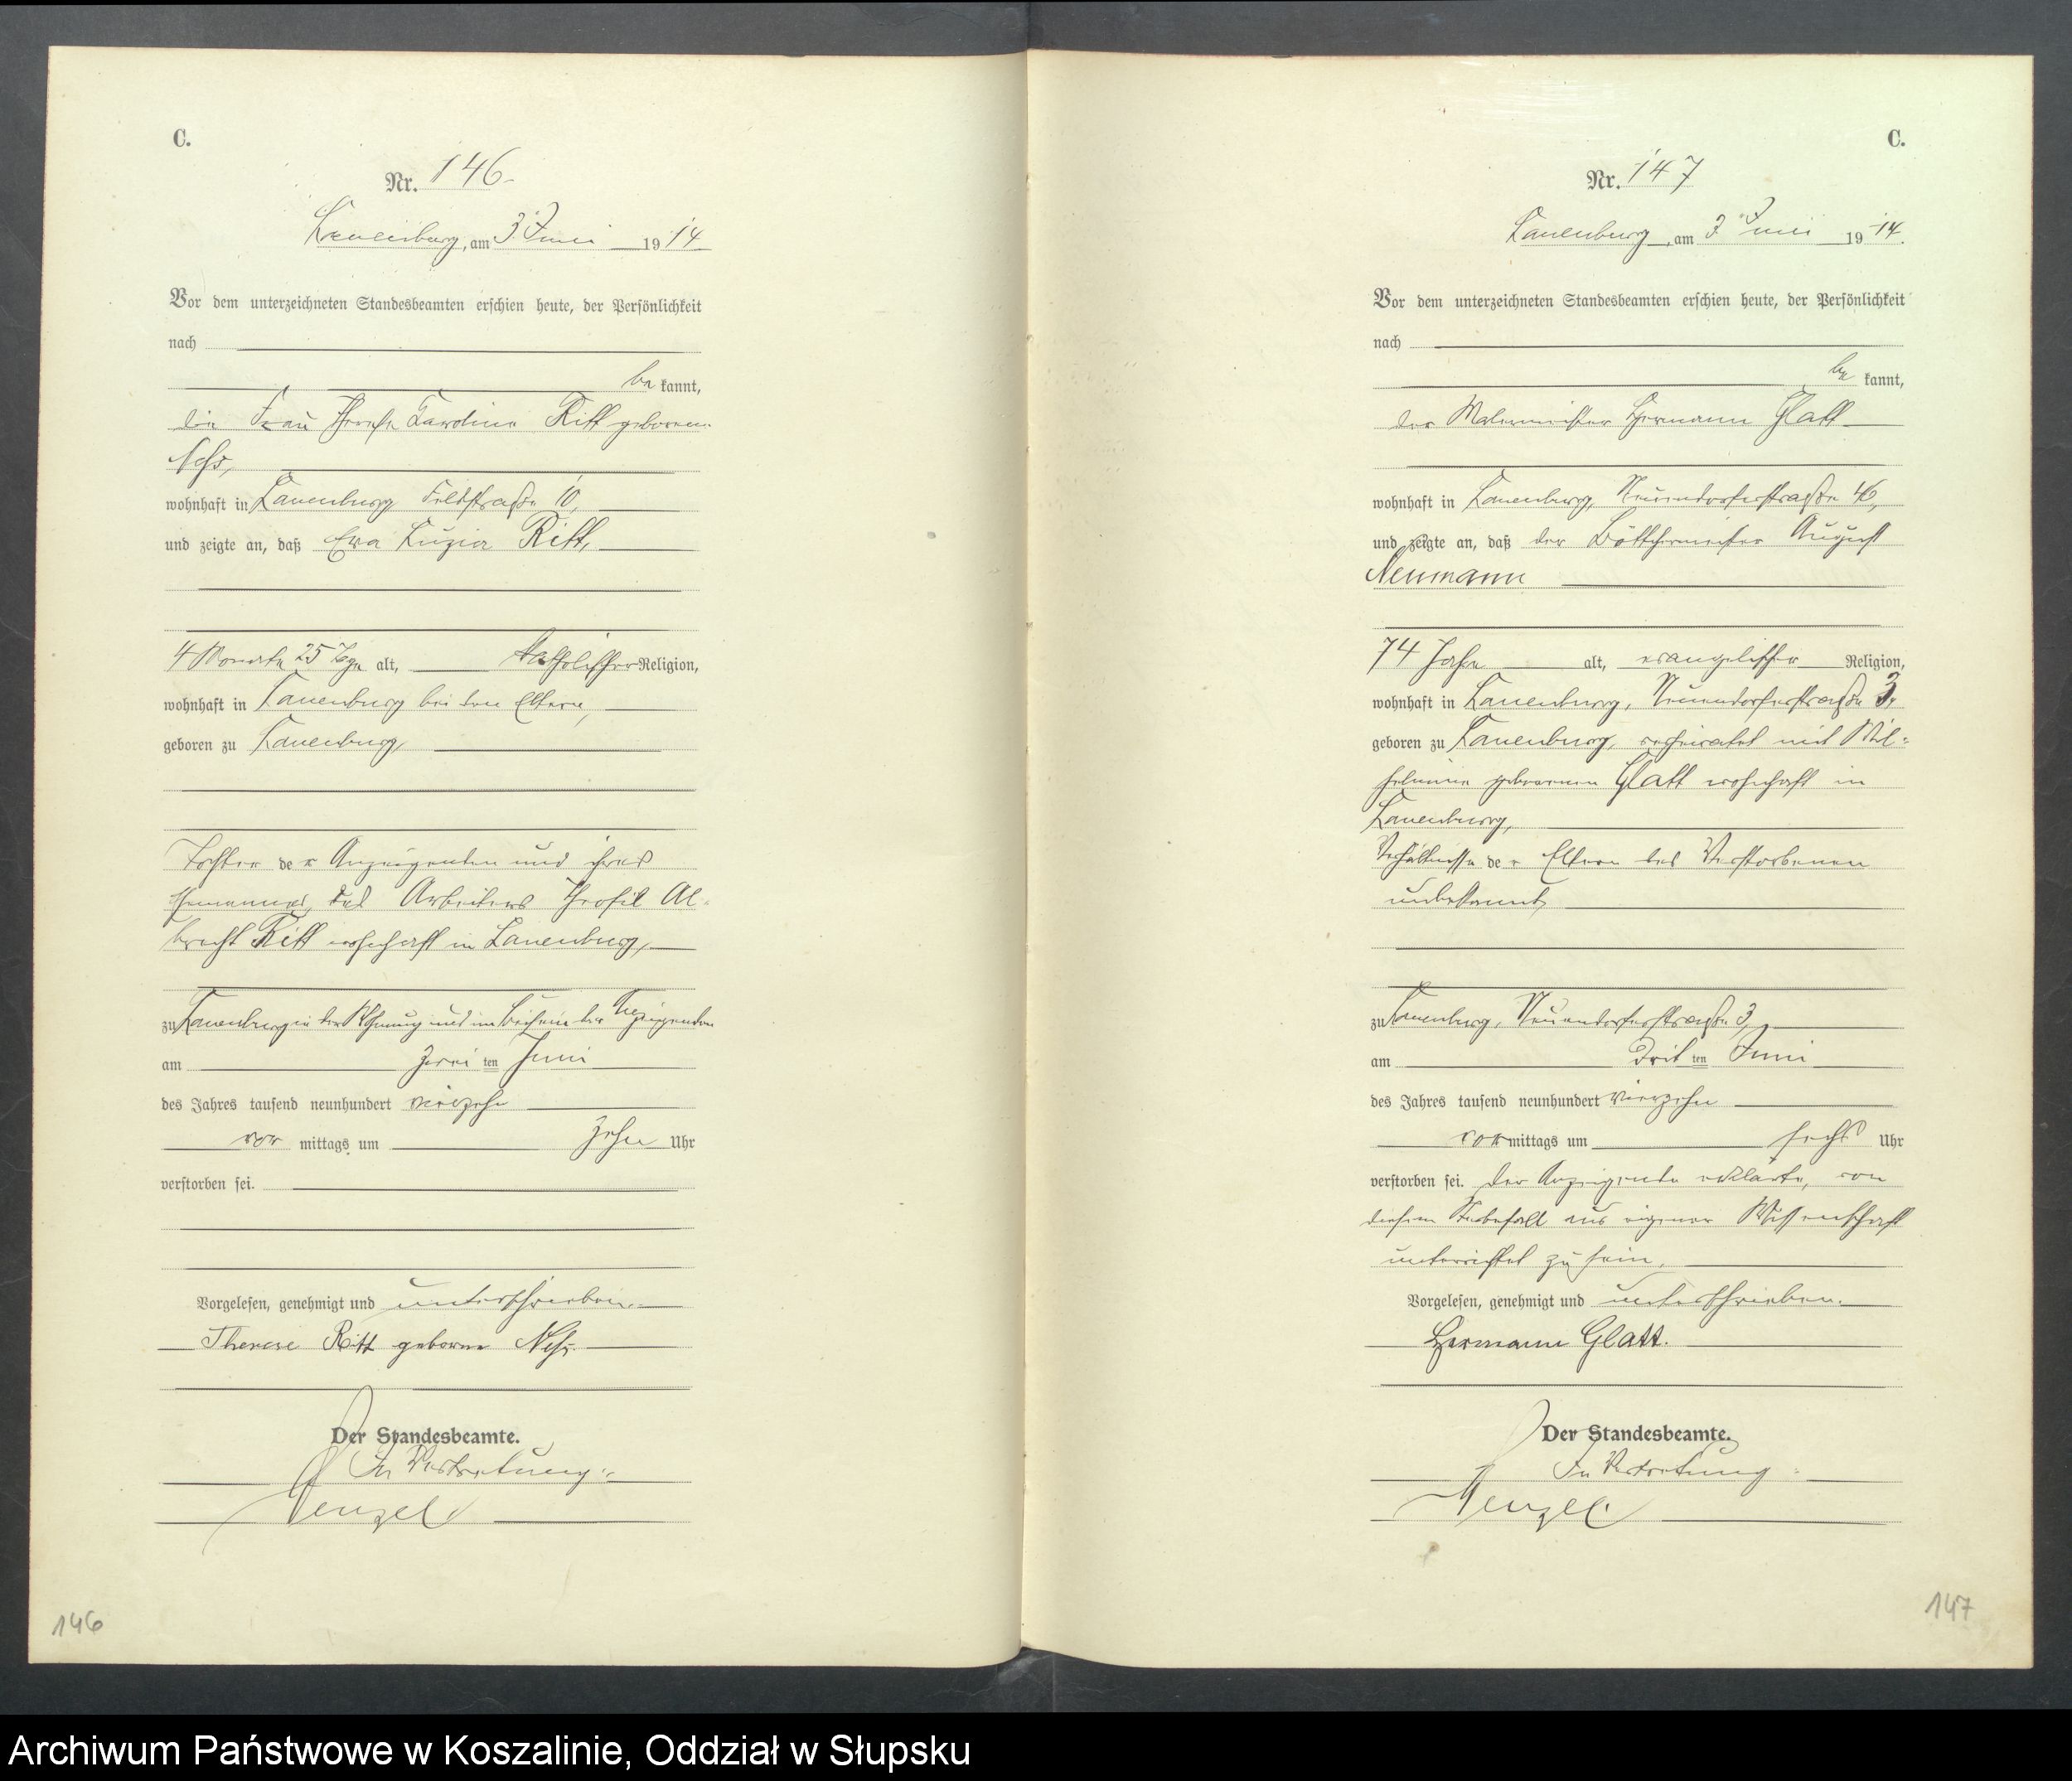 C.
Nr. 146
Lauenburg, am 3 Juni 1914
Vor dem unterzeichneten Standesbeamten erschien heute, der Persönlichkeit
nach
be kannt,
die Frau Therese Karoline Ritt geborene
wohnhaft in Lauenburg Feldstraße 10,
und zeigte an, daß Eva Luzia Ritt,
4 Monate 25 Tage alt, katholischer Religion,
wohnhaft in Lauenburg bei den Eltern,
geboren zu Lauenburg,
Tochter der Anzeigenden und ihres
Ehemannes, des Arbeiters Al-
brecht Ritt wohnhaft in Lauenburg,
zu Lauenburg in der Wohnung und im Beisein der Anzeigenden
am zwei ten Juni
des Jahres tausend neunhundert vierzehn
vor mittags um zehn Uhr
verstorben sei.
Vorgelesen, genehmigt und unterschrieben.
Therese Ritt geborene
Der Standesbeamte.
In Vertretung:
Wenzel
146
C.
Nr. 147
Lauenburg, am 3 Juni 1914.
Vor dem unterzeichneten Standesbeamten erschien heute, der Persönlichkeit
nach
be kannt,
der Malermeister Hermann Glatt
wohnhaft in Lauenburg, Neuendorferstraße 46,
und zeigte an, daß der Böttchermeister August
Neumann
74 Jahre alt, evangelischer Religion,
wohnhaft in Lauenburg, Neuendorferstraße 3,
geboren zu Lauenburg, verheiratet mit Wil-
helmine geborenen Glatt wohnhaft in
Lauenburg,
Verhältnisse der Eltern des Verstorbenen
unbekannt,
zu Lauenburg, Neuendorferstraße 3,
am drit ten Juni
des Jahres tausend neunhundert vierzehn
vor mittags um sechs Uhr
verstorben sei. Der Anzeigende erklärte, von
diesem Sterbefall aus eigener Wissenschaft
unterrichtet zu sein.
Vorgelesen, genehmigt und unterschrieben.
Hermann Glatt.
Der Standesbeamte.
In Vertretung:
Wenzel
147
Archiwum Państwowe w Koszalinie, Oddział w Słupsku